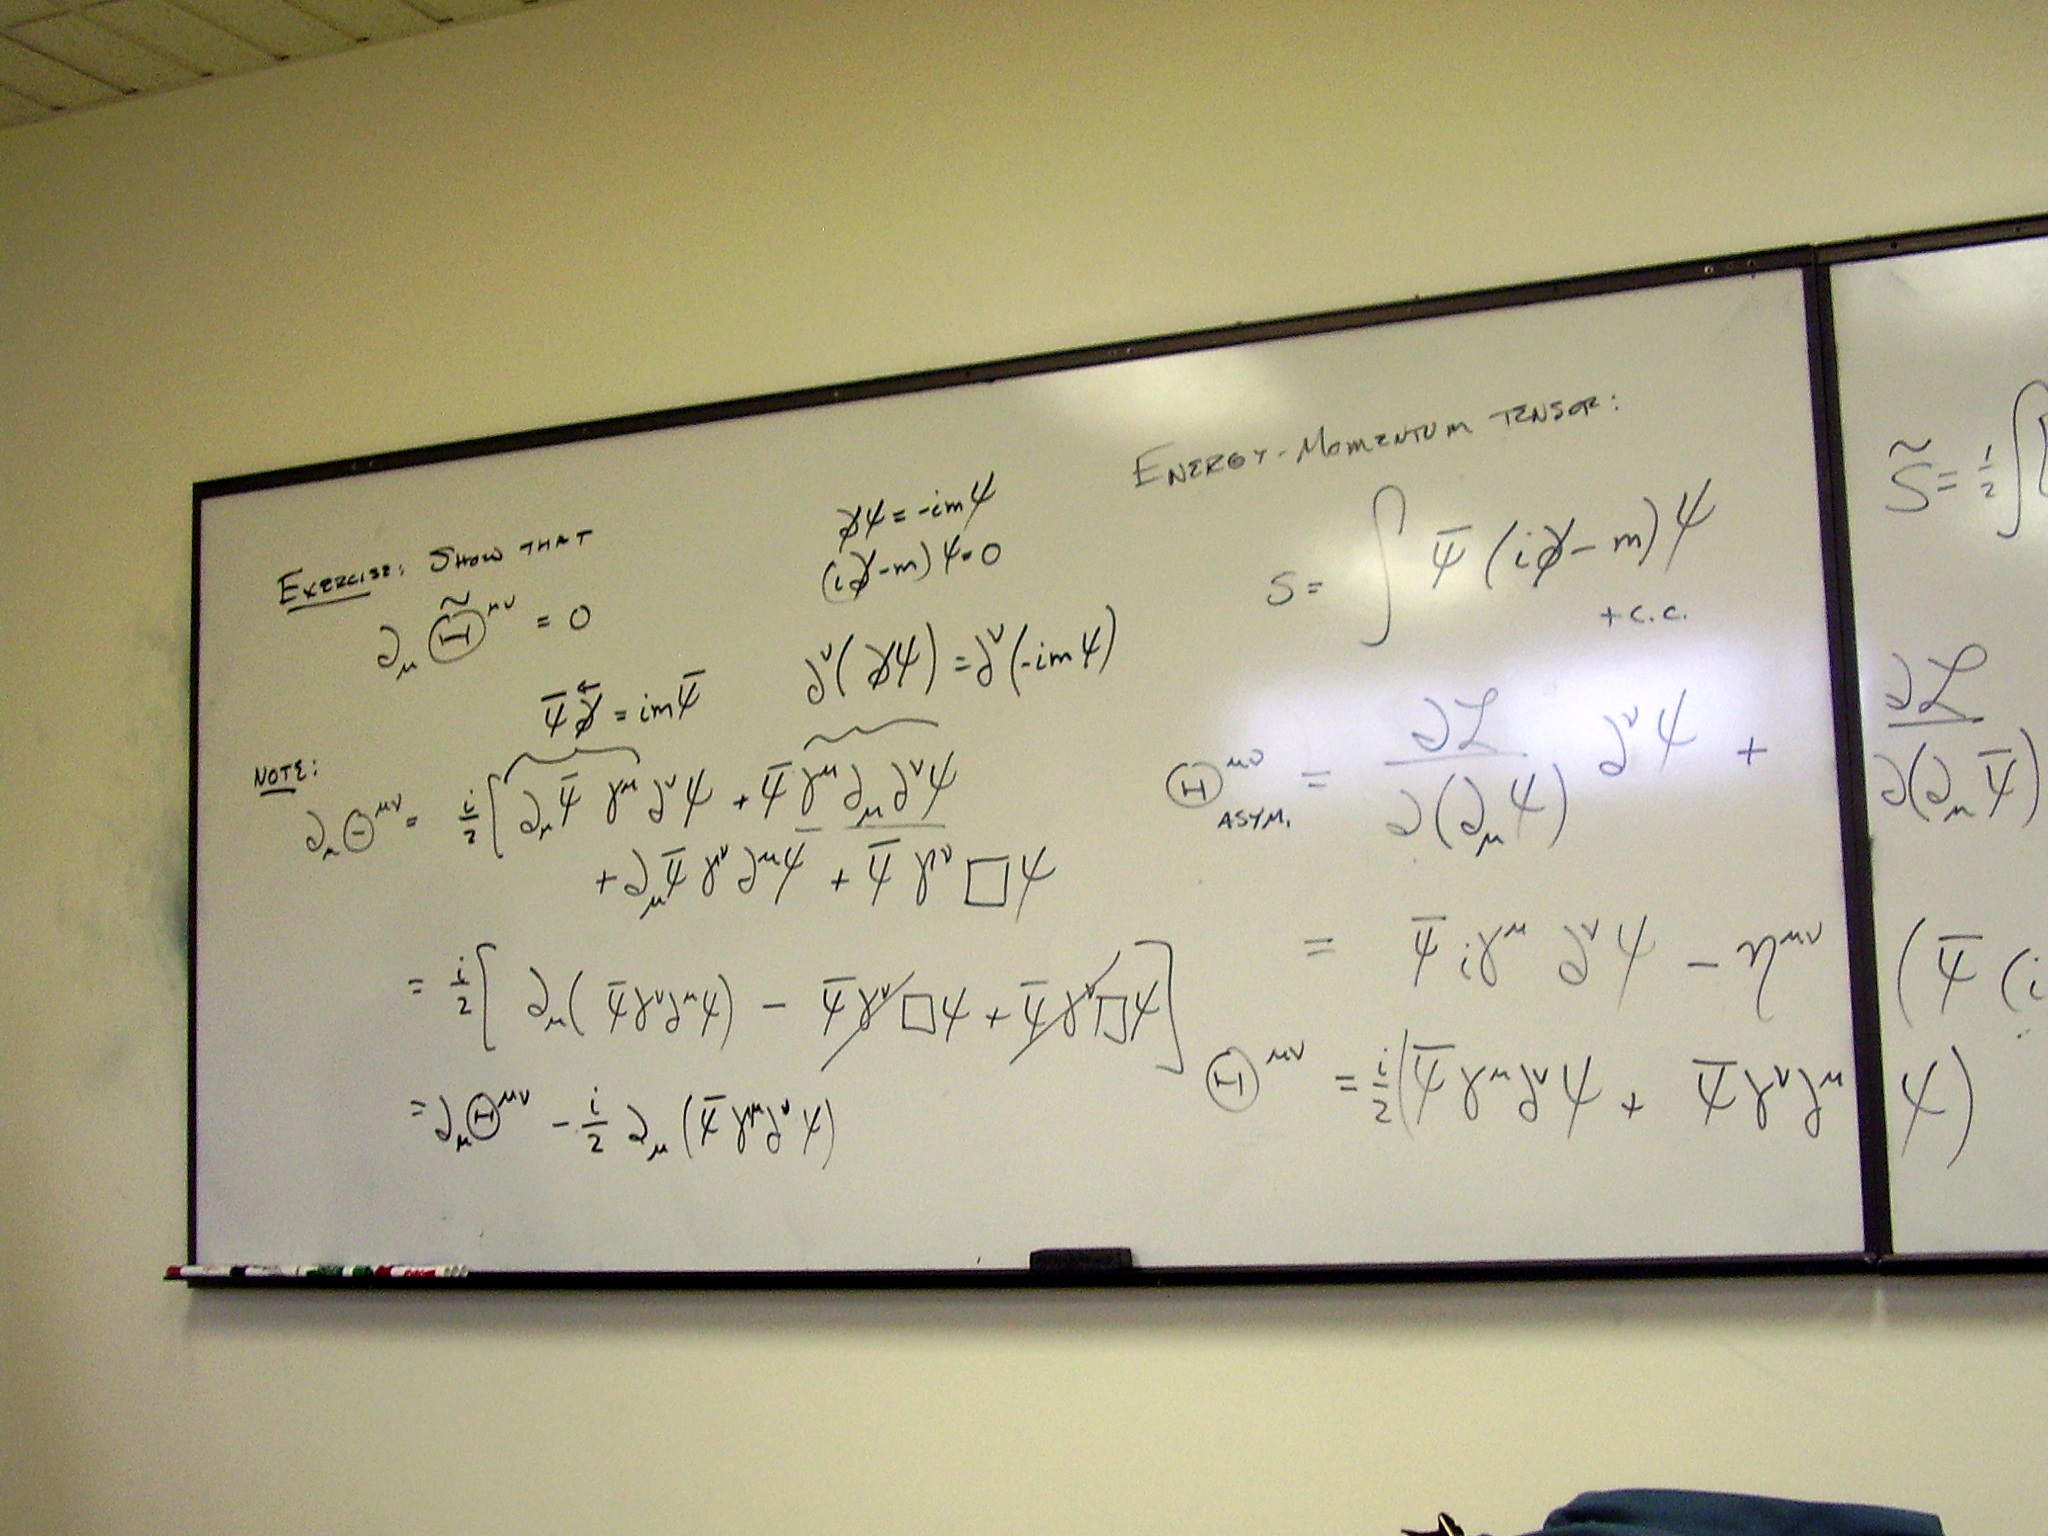 Exercise: Show that
∂_μ Θ̃^μν = 0
∂̸ψ = -imψ
(i∂̸-m)ψ=0
ψ̄∂̸⃖ = imψ̄
∂^ν(∂̸ψ) = ∂^ν(-imψ)
Note:
∂_μ Θ^μν = i/2[∂_μψ̄ γ^μ ∂^νψ + ψ̄γ^μ ∂_μ ∂^νψ
+ ∂_μψ̄ γ^ν ∂^μψ + ψ̄ γ^ν □ψ
= i/2[ ∂_μ(ψ̄γ^ν∂^μψ) - ψ̄γ^ν□ψ + ψ̄γ^ν□ψ]
= ∂_μ Θ^μν - i/2 ∂_μ(ψ̄γ^μ∂^νψ)
Energy-Momentum Tensor:
S = ∫ ψ̄(i∂̸-m)ψ
+ c.c.
Θ^μν_ASYM. = ∂ℒ/∂(∂_μψ) ∂^νψ + ∂ℒ/∂(∂_μψ̄)
= ψ̄ iγ^μ ∂^νψ - η^μν (ψ̄(i
Θ^μν = i/2(ψ̄γ^μ∂^νψ + ψ̄γ^ν∂^μ ψ)
S̃ = 1/2 ∫[